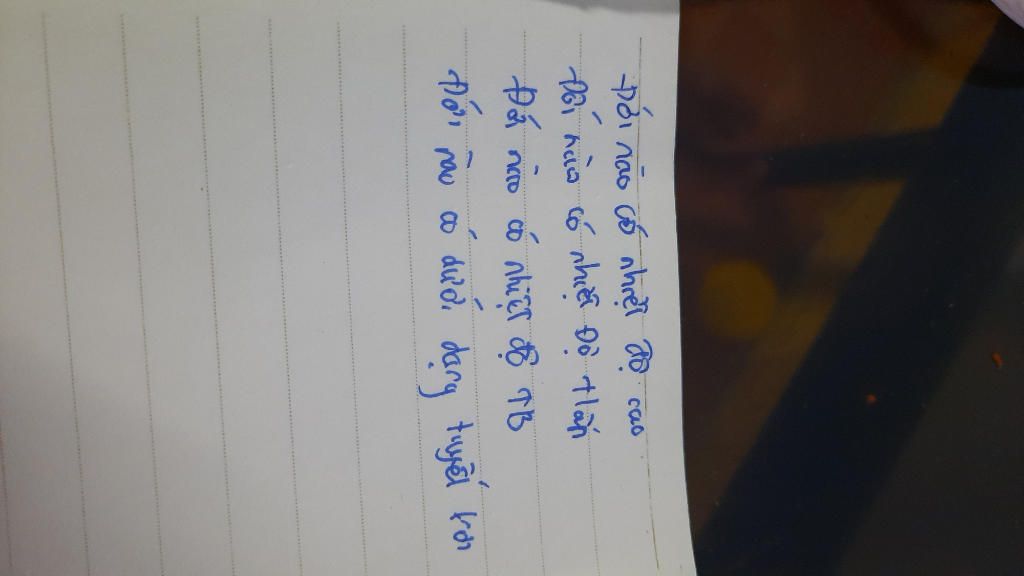 Đới nào có nhiệt độ cao
Đới nào có nhiệt độ thấp
Đới nào có nhiệt độ TB
Đới nào có dưới dạng tuyết rơi